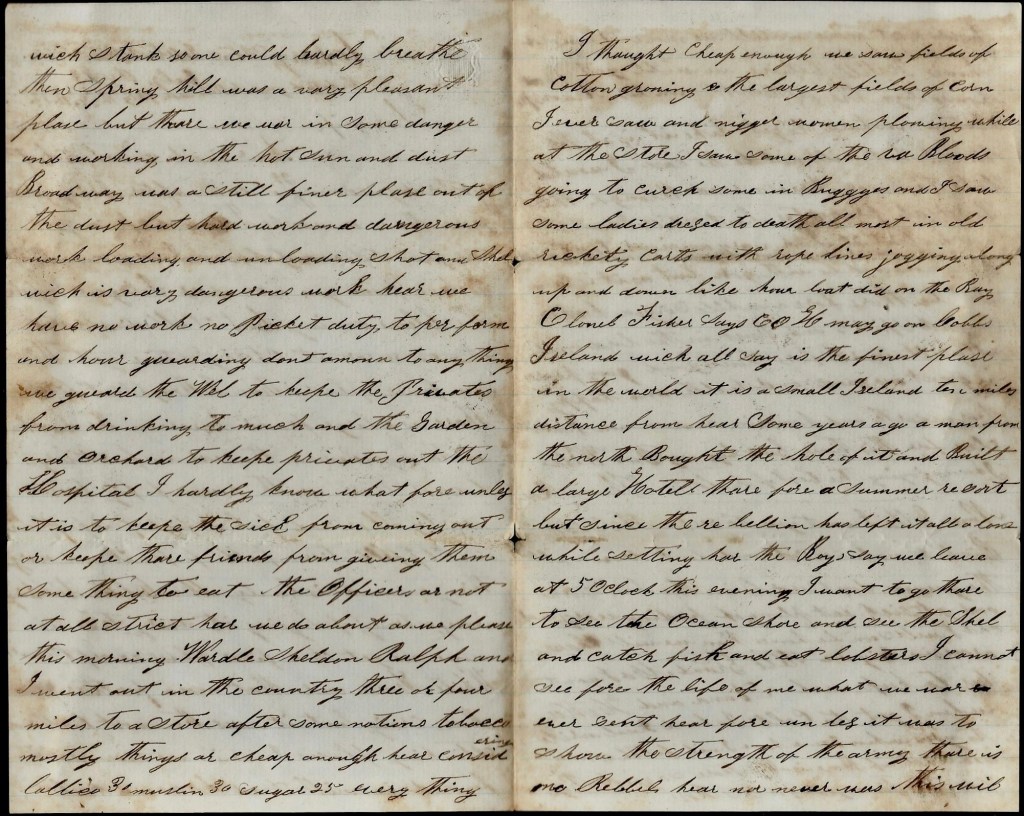 wich stank so one could hardly breathe
then Spring hill was a vary pleasant
plase but thare we war in some danger
and working in the hot sun and dust
Broad way was a still finer plase out of
the dust but hard work and dangerous
work loading and unloading shot and Shel
wich is vary dangerous work hear we
have no work no Picket duty to per form
and hour guarding dont amoun to any thing
we gueard the Wel to keepe the Privates
from drinking to much and the Garden
and orchard to keepe privates out the
Hospital I hardly know what fore unles
it is to keepe the sick from coming out
or keepe thare friends from giveing them
some thing to eat the Officers ar not
at all strict har we do about as we please
this morning Wardle Sheldon Ralph and
I went out in the country three or four
miles to a store after some notions tobacco
mostly things ar cheap anough hear consid
ering
callico 30 muslin 30 sugar 25 every thing
I thought cheap enough we saw fields of
cotton groning & the largest fields of corn
I ever saw and nigger women plowing while
at the store I saw some of the va Bloods
going to curch some in Buggyes and I saw
some ladies dresed to death all most in old
rickety carts with rope lines jogging along
up and down like hour boat did on the Bay
Clonel Fisher says CO H may go on Cobbs
Ireland wich all say is the finest plase
in the world it is a small Ireland ten miles
distance from hear Some years a go a man from
the north Bought the hole of it and Built
a large Hotell thare fore a summer resort
but since the re bellion has left it all a lone
while setting har the Boys say we leave
at 5 Oclock this evening I want to go thare
to see the Ocean shore and see the Shel
and catch fish and eat lobsters I cannot
see fore the life of me what we war
ever sent hear fore un les it was to
show the strength of the army thare is
no Rebbels hear nor never was this wil